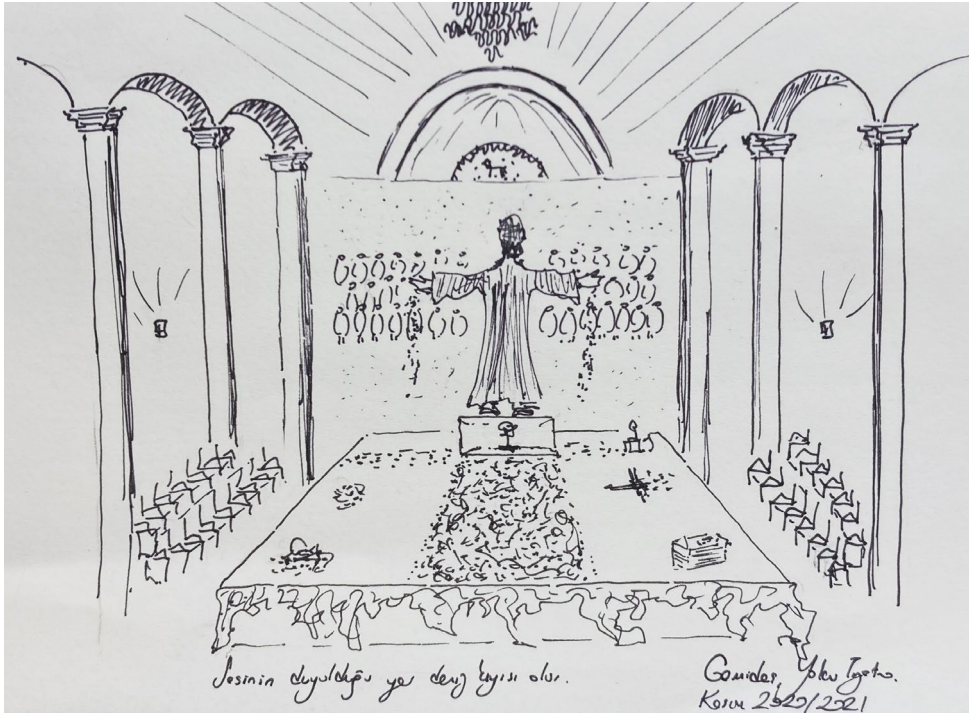 Sesinin duyulduğu yer deniz kıyısı olur.
Gomidas,
Kasım 2020/2021